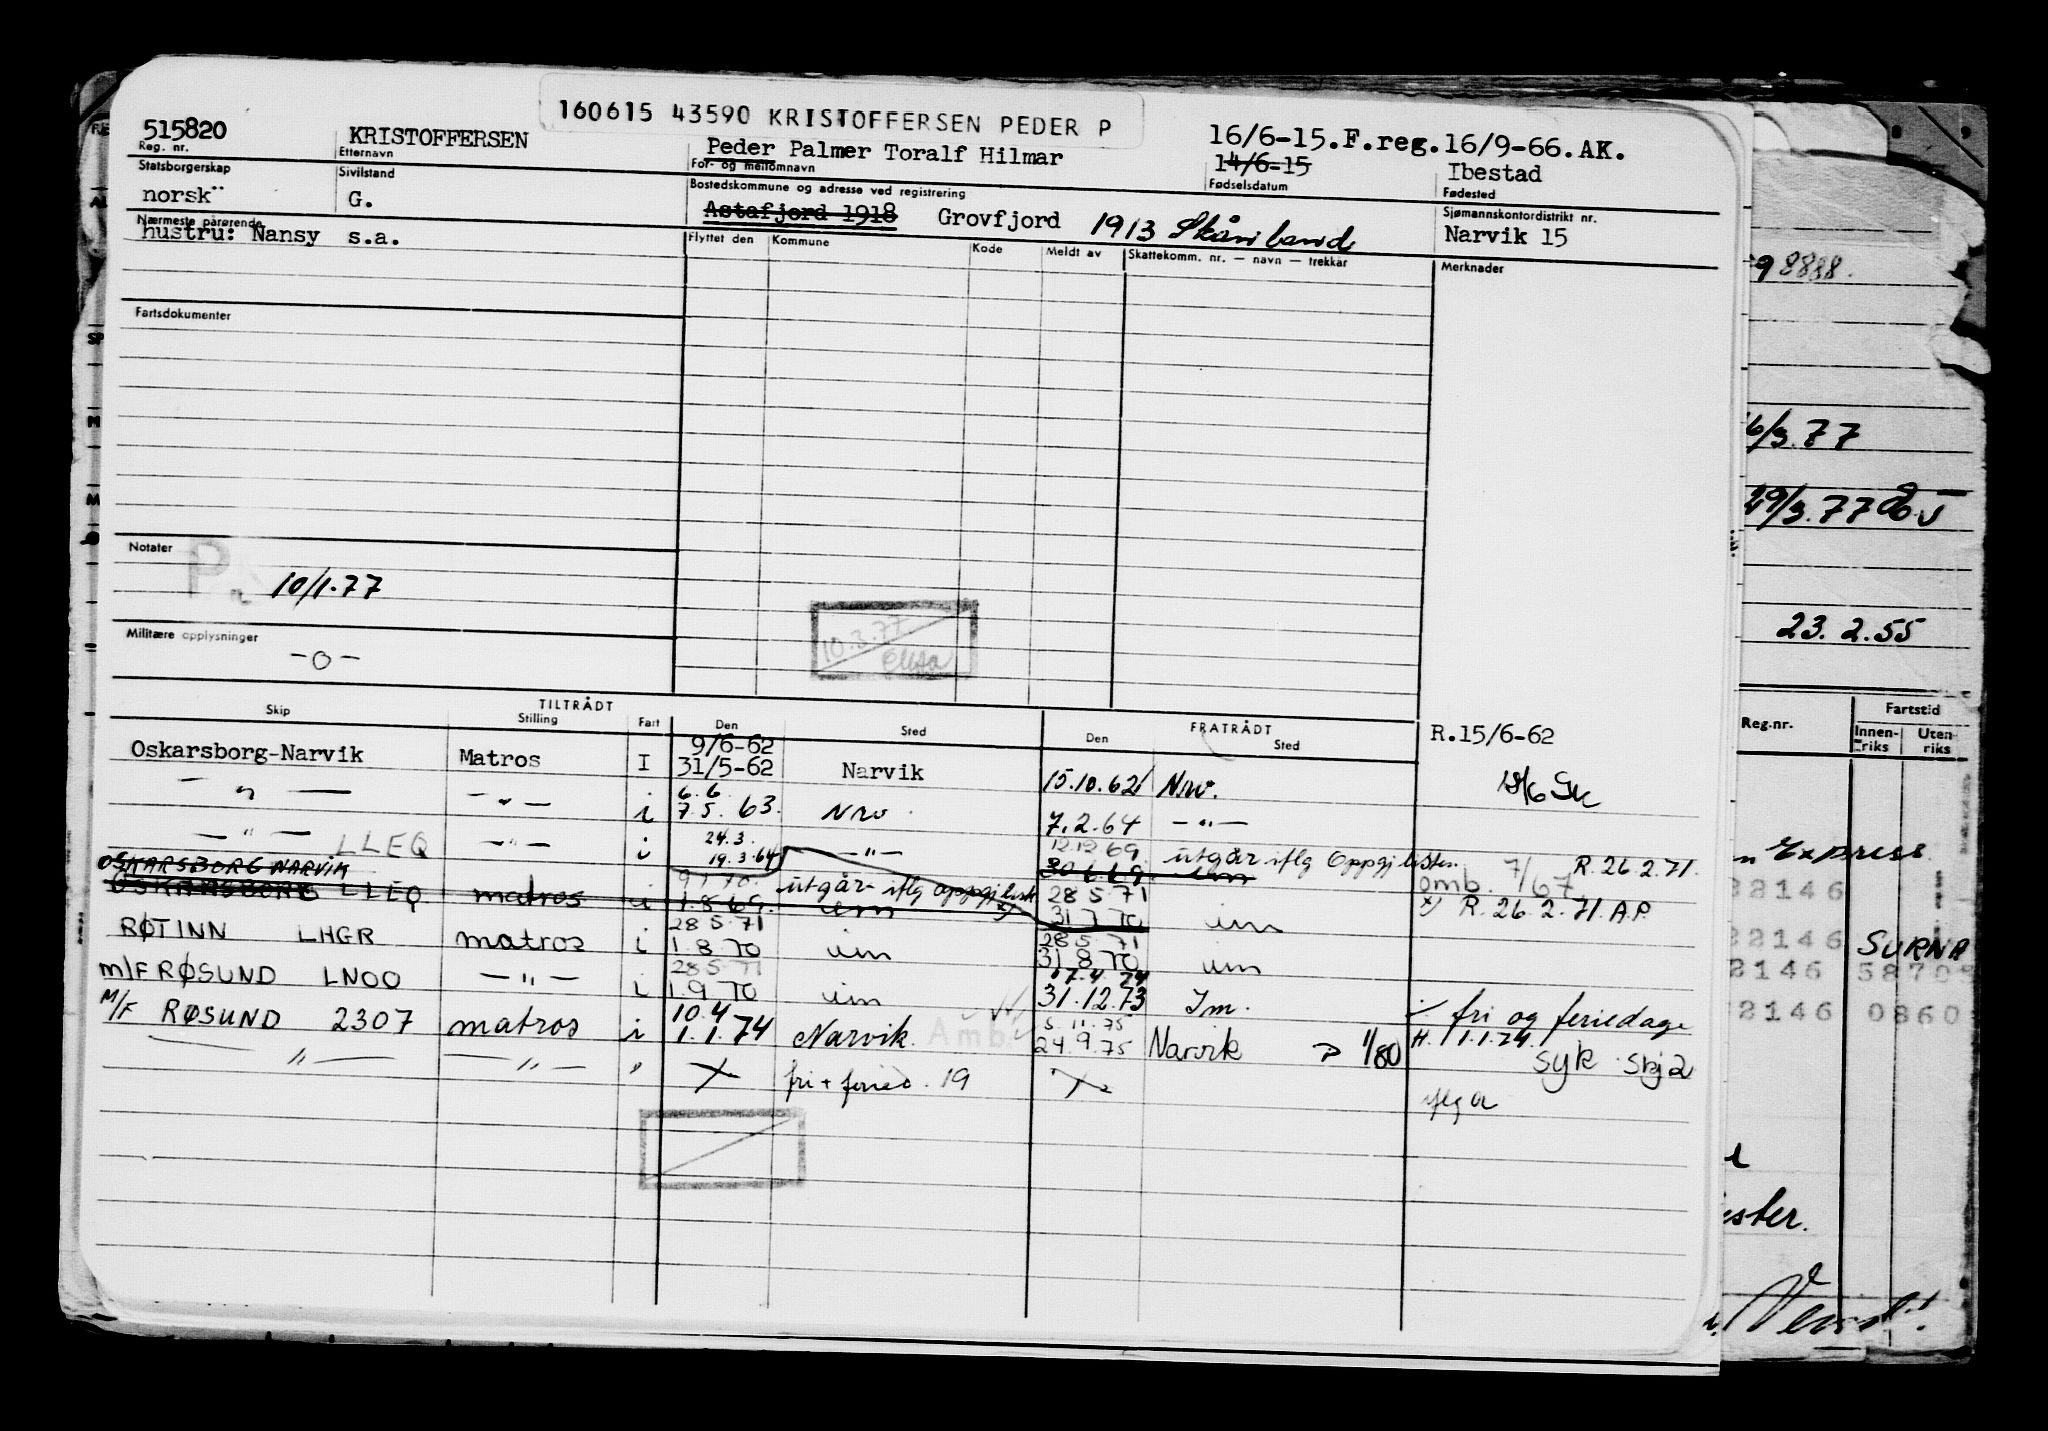 160615 43590 KRISTOFFERSEN PEDER P
515820 KRISTOFFERSEN Peder Palmer Toralf Hilmar 16/6-15.F.reg.16/9-66.AK.
14/6-15 Ibestad
Reg. nr. Etternavn For- og mellomnavn Fødselsdatum Fødested
Statsborgerskap Sivilstand Bostedskommune og adresse ved registrering Sjømannskontordistrikt nr.
norsk G. Astafjord 1918 Grovfjord 1913 Skånland Narvik 15
Nærmeste pårørende
hustru: Nansy s.a.
Flyttet den Kommune Kode Meldt av Skattekomm. nr. — navn — trekkår Merknader
Fartsdokumenter
Notater
10/1.77
10.3.77
Militære opplysninger
-0-
TILTRÅDT FRATRÅDT
Skip Stilling Fart Den Sted Den Sted
R.15/6-62
9/6-62
Oskarsborg-Narvik Matros I 31/5-62 Narvik 15.10.62 Nrv.
6.6.
— " — — " — i 7.5.63. Nrv. 7.2.64 — " —
24.3.
— " — LLEQ — " — i 19.3.64 — " — 12.12.69 utgår iflg oppgj listen. R.26.2.71.
30.6.69 omb. 7/67
OSKARSBORG NARVIK
OSKARSBORG LLEQ matros i 9.1.70. 1.8.69. utgår iflg oppgj list x) 28.5.71 31.7.70 x) R.26.2.71. A.P.
28.5.71 28.5.71
RØTINN LHGR matros i 1.8.70 31.8.70
28.5.71 17.4.74
M/F RØSUND LNOO — " — i 1.9.70 31.12.73 Im. fri og feriedage
10.4 5.11.75
M/F RØSUND 2307 matros i 1.1.74 Narvik. 24.9.75 Narvik 1/80 H. 1.1.74. syk
— " — — " — " X fri + feried. 19 X
98888.
16/3.77
29/3.77
23.2.55
Reg.nr. Fartstid
Innenriks Utenriks
Express
22146
22146 SURNA
2146 5870
2146 0860